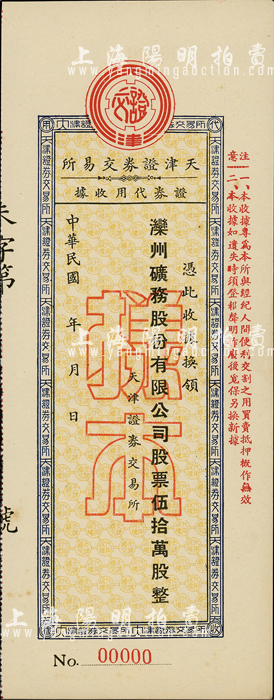 上海陽明拍賣
yangmingauction.com
證交
津
天津證券交易所
證券代用收據
注意
一、本收據專爲本所與經紀人間便利交割之用買賣抵押概作無效
二、本收據如遺失時須登報聲明作廢後覓保另換新據
憑此收據換領
灤州礦務股份有限公司股票伍拾萬股整
天津證券交易所
中華民國 年 月 日
樣本
字第
號
No. 00000
上海陽明拍賣